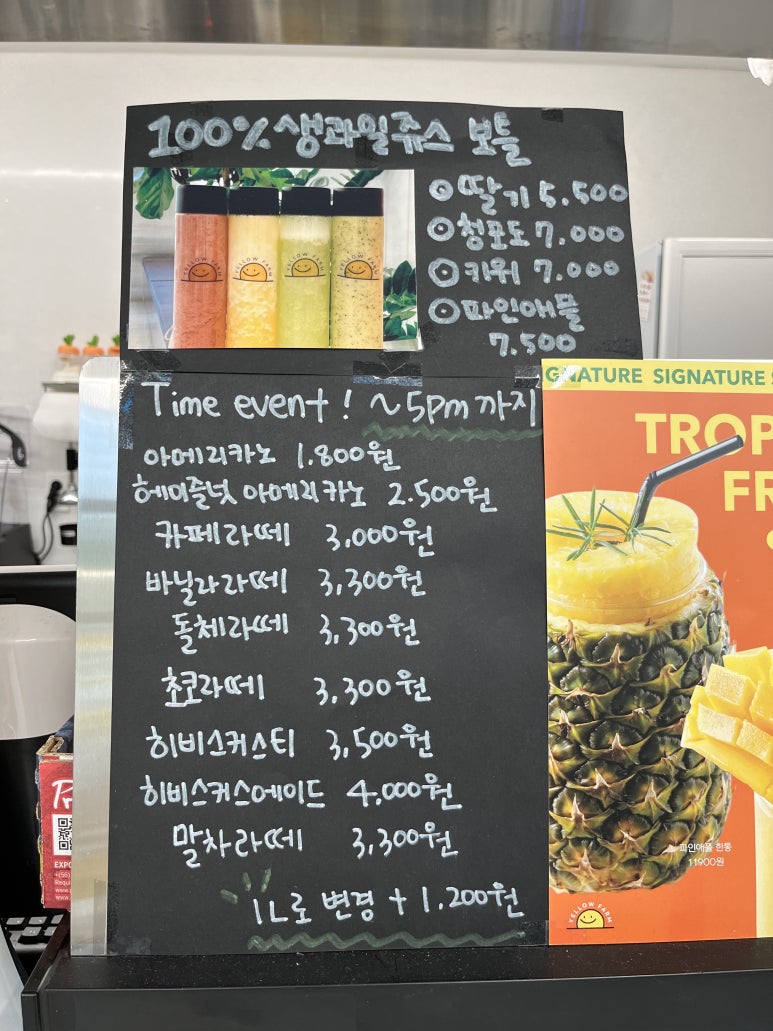 100% 생과일쥬스 보틀
◎딸기 5.500
◎청포도 7.000
◎키위 7.000
◎파인애플
7.500
YELLOW FARM
YELLOW FARM
YELLOW FARM
YELLOW FARM
Time event! ~5pm까지
아메리카노 1.800원
헤이즐넛 아메리카노 2.500원
카페라떼 3,000원
바닐라라떼 3,300원
돌체라떼 3,300원
초코라떼 3,300원
히비스커스티 3,500원
히비스커스에이드 4.000원
말차라떼 3,300원
1L로 변경 + 1.200원
GNATURE SIGNATURE S
TROP
FR
파인애플 한통
11900원
YELLOW FARM
EXPO